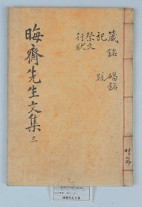 晦齋先生文集 三
箴銘 碣銘
記 跋
祭文
行狀